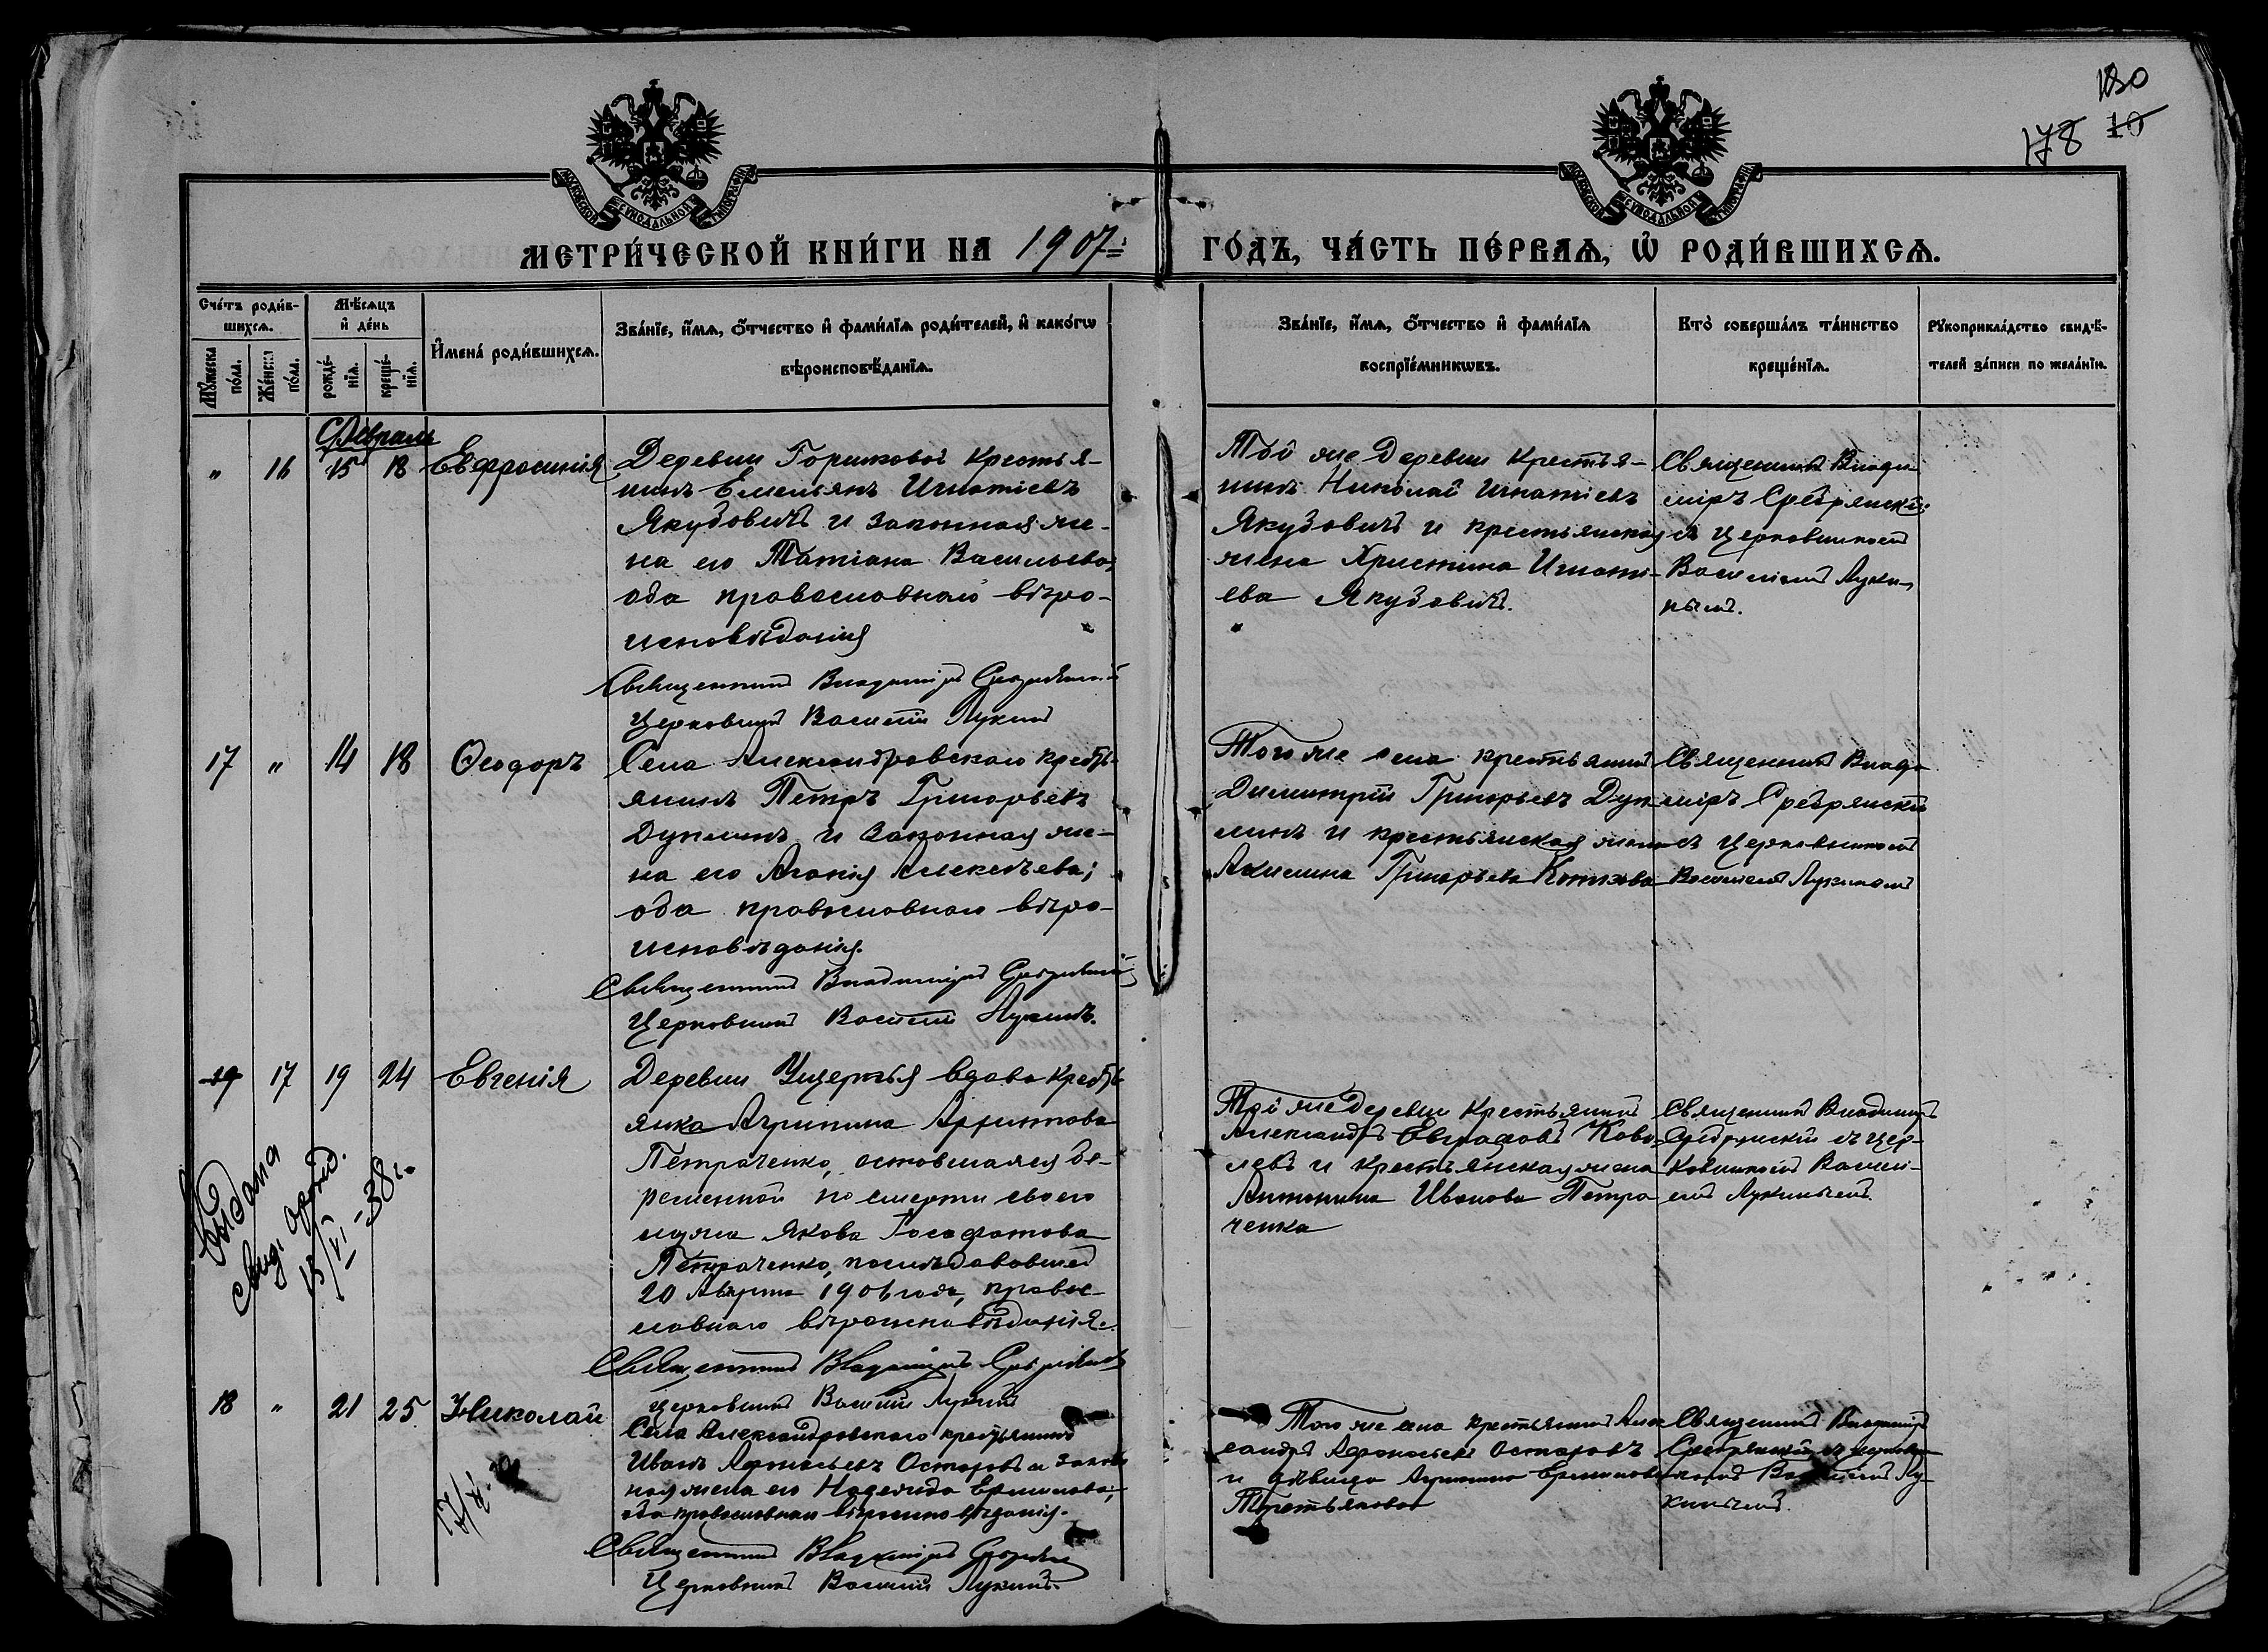 180
178 10
МОСКОВСКОЙ СѴНОДАЛЬНОЙ ТИПОГРАФІИ
МОСКОВСКОЙ СѴНОДАЛЬНОЙ ТИПОГРАФІИ
МЕТРИ́ЧЕСКОЙ КНИ́ГИ НА 1907 ГО́ДЪ, ЧА́СТЬ ПЕ́РВАѦ, Ѡ҆ РОДИ́ВШИХСѦ.
Сче́тъ роди́в-
шихсѧ.
Мꙋ́жеска по́ла.
Же́нска по́ла.
Мѣ́сѧцъ
и҆ де́нь
рожде́-
нїѧ.
креще́-
нїѧ.
И҆мена̀ роди́вшихсѧ.
Зва́нїе, и҆́мѧ, ѻ҆́тчество и҆ фами́лїѧ роди́телей, и҆ како́гѡ
вѣроисповѣ́данїѧ.
Зва́нїе, и҆́мѧ, ѻ҆́тчество и҆ фами́лїѧ
воспрїе́мникѡвъ.
Кто̀ соверша́лъ та́инство
креще́нїѧ.
Рꙋкоприкла́дство свидѣ́-
телей за́писи по жела́нїю.
Февраль
" 16 15 18 Евфросинія
Деревни Горшковой крестья-
нинъ Емельянъ Игнатіевъ
Якубовичъ и законная же-
на его Татіана Васильева,
оба православнаго вѣро-
исповѣданія
Священникъ Владиміръ Сребрянскій
Церковникъ Василій Лукинъ
Той же деревни крестья-
нинъ Николай Игнатіевъ
Якубовичъ и крестьянская
жена Христина Игнаті-
ева Якубовичъ.
Священникъ Влади-
міръ Сребрянскій
съ церковникомъ
Василіемъ Луки-
нымъ.
17 " 14 18 Ѳеодоръ
Села Александровскаго кресть-
янинъ Петръ Григорьевъ
и законная же-
на его Агафія Алексѣева;
оба православнаго вѣро-
исповѣданія.
Священникъ Владиміръ Сребрянскій
Церковникъ Василій Лукинъ.
Того же села крестьянинъ
Димитрій Григорьевъ
и крестьянская жена
Акилина Григорьева
Священникъ Влади
міръ Сребрянскій
съ церковникомъ
Василіемъ Лукинымъ
19 17 19 24 Евгенія
Деревни Ущерпья вдова кресть
янка Агрипина
Петраченко, оставшаяся бе-
ременной по смерти своего
мужа Якова Іосафатова
Петраченко, послѣдовавшей
20 Августа 1906 года, правос-
лавнаго вѣроисповѣданія.
Священникъ Владиміръ Сребрянскій
Церковникъ Василій Лукинъ
Той же деревни крестьянинъ
Александръ Евграфовъ Кова
левъ и крестьянская жена
Антонина Иванова Петра
ченка
Священникъ Владиміръ
Сребрянскій съ цер-
ковникомъ Васили-
емъ Лукинымъ.
Выдана
18/VI-38г.
18 " 21 25 Николай
Села Александровскаго крестьянинъ
Иванъ Афонасьевъ Остаповъ и закон
ная жена его Надежда Ермилова,
оба православнаго вѣроисповѣданія.
Священникъ Владиміръ Сребрянскій
Церковникъ Василій Лукинъ.
Того же села крестьянинъ Алек
сандръ Афонасьевъ Остаповъ
и дѣвица Ермилова
Третьякова
Священникъ Владиміръ
Сребрянскій съ церков
никомъ Василіемъ Лу-
кинымъ.